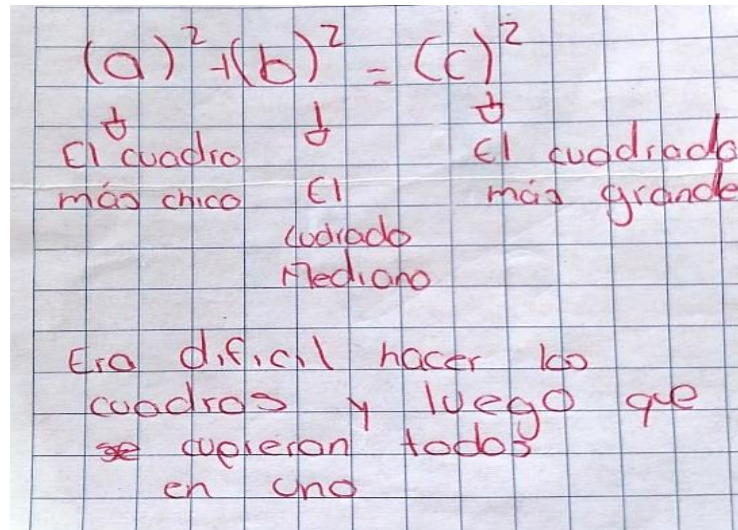 (a)² + (b)² = (c)²
El cuadro
más chico
El
cudrado
Mediano
El cuadrado
más grande
Era dificil hacer los
cuadros y luego que
se cupieran todos
en uno